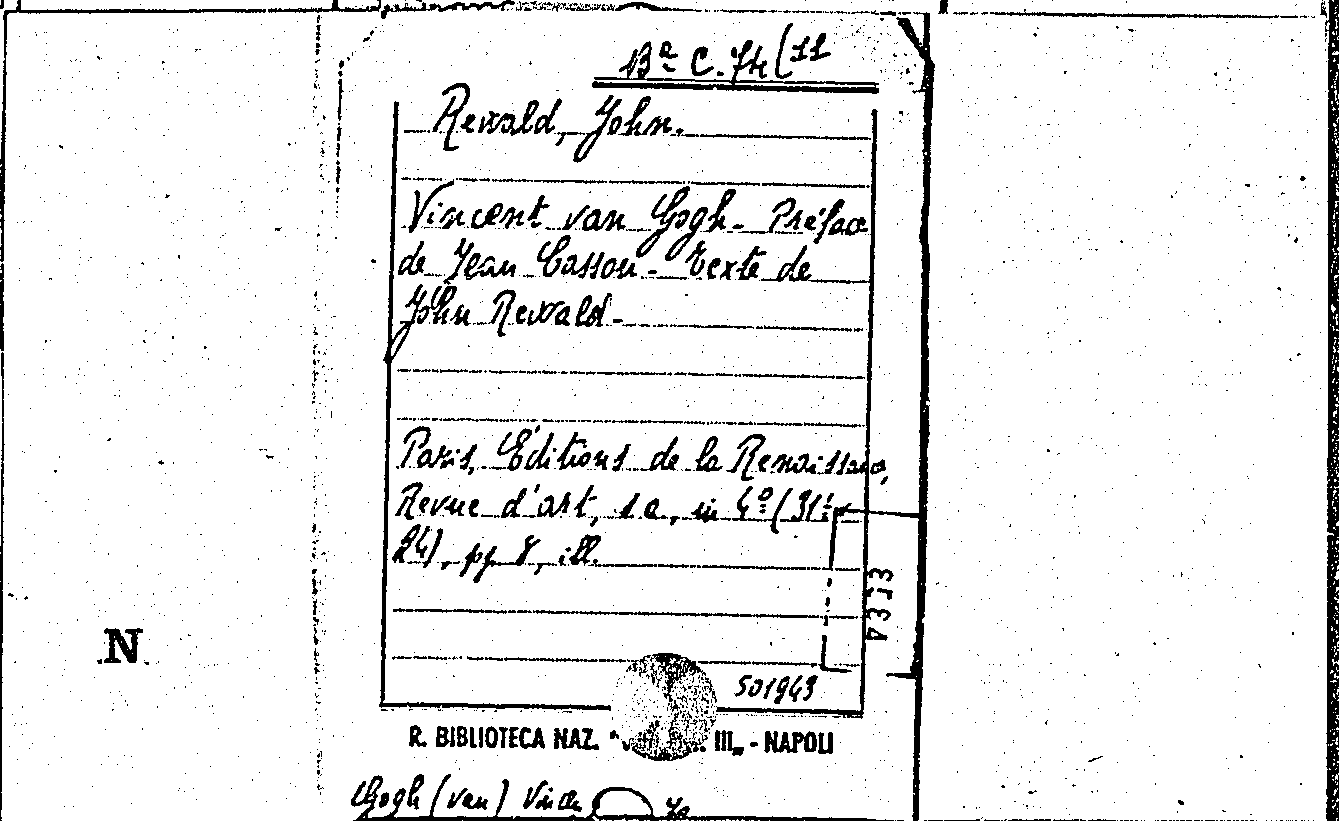 Bª C. 74 (11
Rewald, John.
Vincent van Gogh - Préface
de Jean Cassou - Texte de
John Rewald -
Paris, Éditions de la Renaissance,
Revue d'art, s a, in 4º (31×
24), pp 8, ill.
N
501943
R. BIBLIOTECA NAZ. " III„ - NAPOLI
Gogh (van)